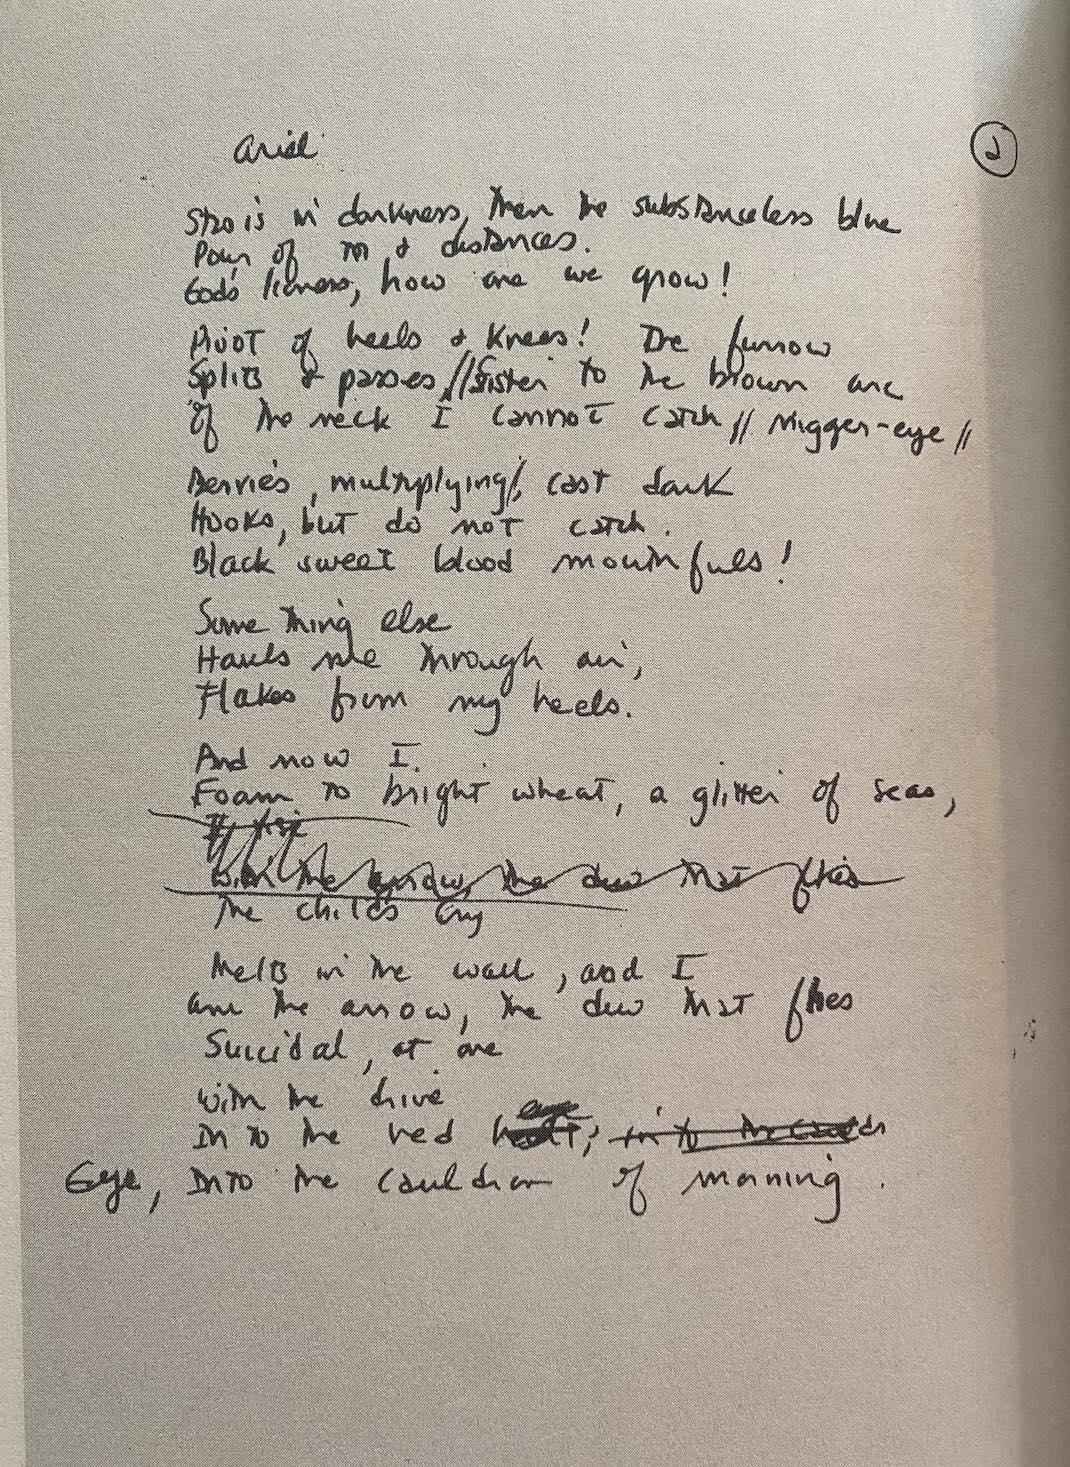 Ariel
2
Stasis in darkness, then the substanceless blue
Pour of tor & distances.
God's lioness, how one we grow!
Pivot of heels & knees! The furrow
Splits & passes,//Sister to the brown arc
Of the neck I cannot catch // Nigger-eye //
Berries, multiplying/, cast dark
Hooks, but do not catch.
Black sweet blood mouthfuls!
Something else
Hauls me through air,
Flakes from my heels.
And now I.
Foam to bright wheat, a glitter of seas,
With the arrow, the dew that flies
The child's cry
Melts in the wall, and I
am the arrow, the dew that flies
Suicidal, at one
With the drive
Into the red eye heart; into the
Eye, Into the cauldron of morning.